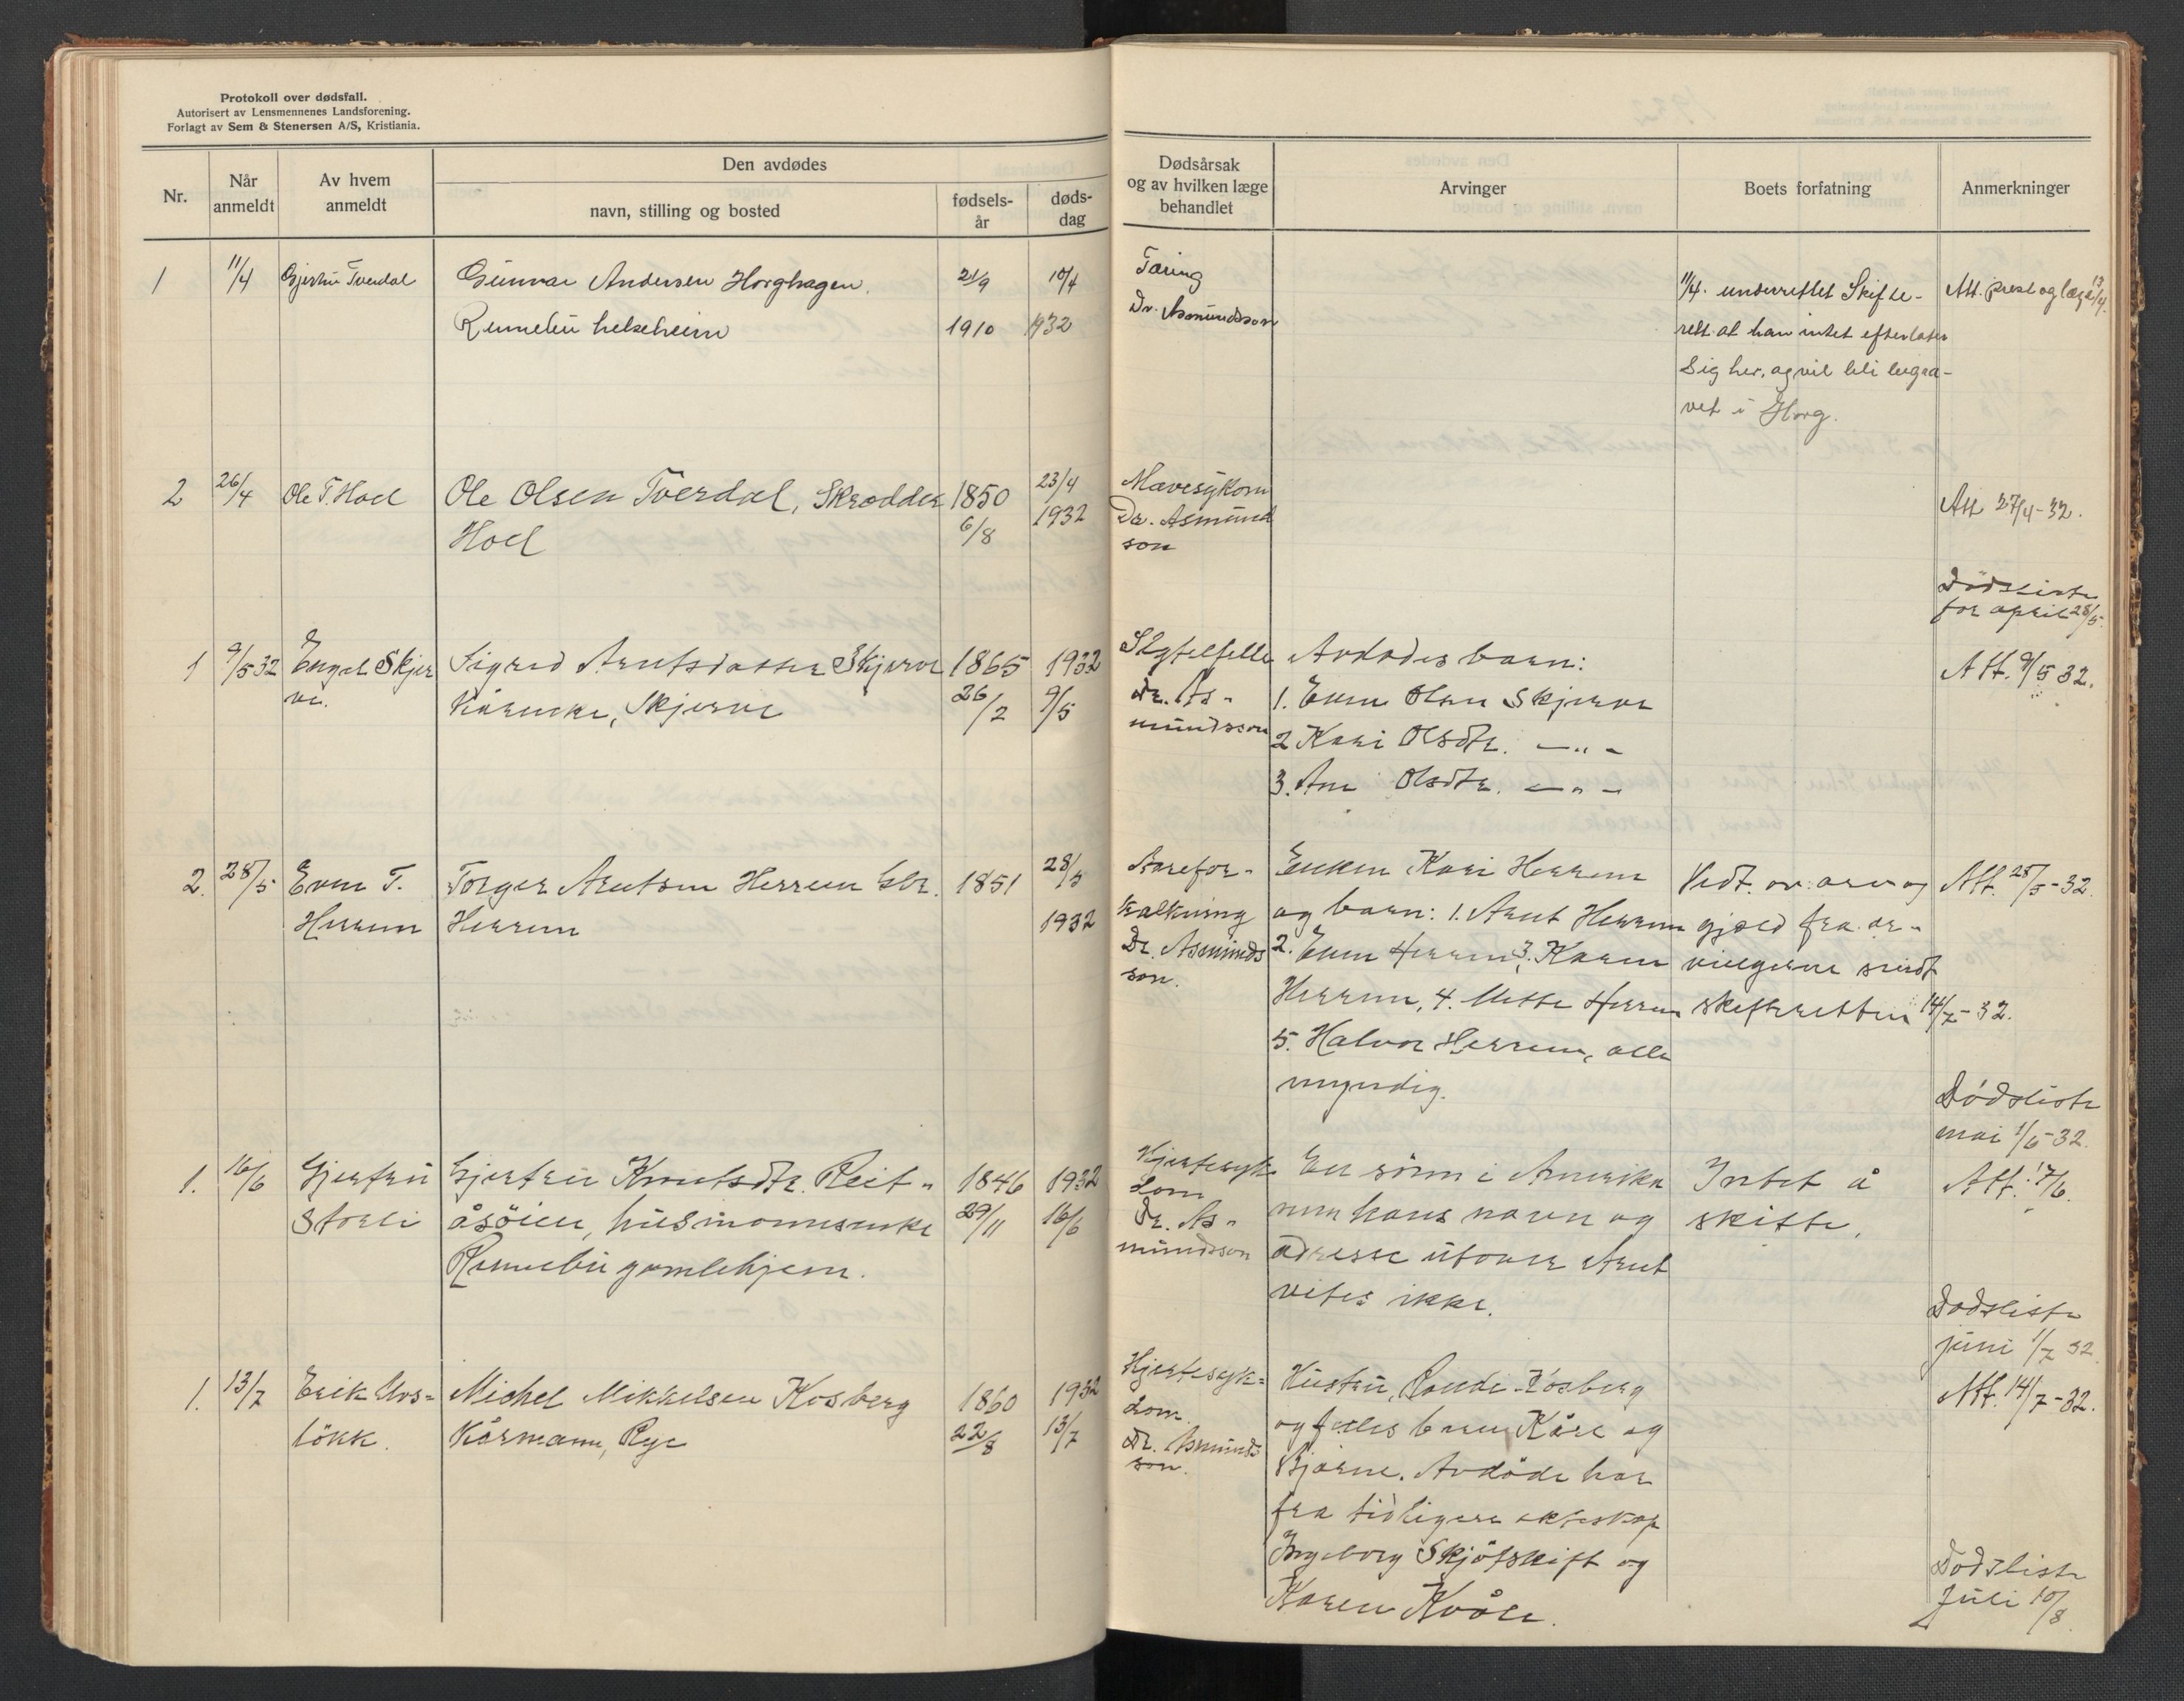 Protokoll over dødsfall.
Autorisert av Lensmennenes Landsforening.
Forlagt av Sem & Stenersen A/S, Kristiania.
Nr.
Når anmeldt
Av hvem anmeldt
Den avdødes
navn, stilling og bosted
fødsels-år
døds-dag
Dødsårsak og av hvilken læge behandlet
Arvinger
Boets forfatning
Anmerkninger
1 11/4 Gjertru Tverdal Gunnar Andersen Horghagen. 21/9 10/4
Rennebu helseheim 1910 1932
Tæring
Dr. Asmundsson
11/4. underrettet Skifte-
rett at han intet efterlater
Sig her, og vil bli begra-
vet i Horg.
Att. prest og læge 13/4.
2 26/4 Ole T. Hoel Ole Olsen Tverdal, Skrædder 1850 23/4
Hoel 6/8 1932
Mavesykom
Dr. Asmund
son
Att 27/4-32.
Dødsliste
for april 28/5.
1 9/5 32 Engel Skjer Sigrid Arntsdatter Skjerve 1865 1932
ve. Kårenke, Skjerve 26/2 9/5
Slagtilfelle
Dr. As-
mundsson
Avdødes barn:
1. Even Olsen Skjerve
2 Kari Olsdtr. —"-
3. Ane Olsdtr. —"-
Att. 9/5 32.
2. 28/5 Even T. Torger Arntsen Herrem Gbr. 1851 28/5
Herrem Herrem 1932
Aarefor-
kalkning
Dr. Asmunds
son.
Enken Kari Herrem
og barn: 1. Arnt Herrem
2. Even Herrem, 3. Karen
Herrem, 4. Mette Herrem
5. Halvor Herrem, alle
myndig.
Vedt. av arv og
gjeld fra ar-
vingerne sendt
skifteretten 14/7-32.
Att. 28/5-32.
Dødsliste
mai 1/6-32.
1. 16/6 Gjertru Gjertru Knutsdtr. Reit- 1846 1932
Storli åsøien, husmannsenke 29/11 16/6
Rennebu gamlehjem.
Hjertesyk
dom
Dr. As-
mundsson
En sønn i Amerika
men hans navn og
adresse utover Arnt
vites ikke.
Intet å
skifte.
Att. 17/6.
Dødsliste
juni 1/7 32.
1. 13/7 Erik Mos= Michel Mikkelsen Kosberg 1860 1932
løkk. Kårmann, Rye 22/8 13/7
Hjertesyk=
dom.
Dr. Asmunds
son.
Hustru, Randi Kosberg
og felles barn Kåre og
Bjarne. Avdøde har
fra tidligere ekteskap
Ingeborg Skjøtskift og
Karen Kvåle.
Att. 14/7-32.
Dødsliste
Juli 10/8